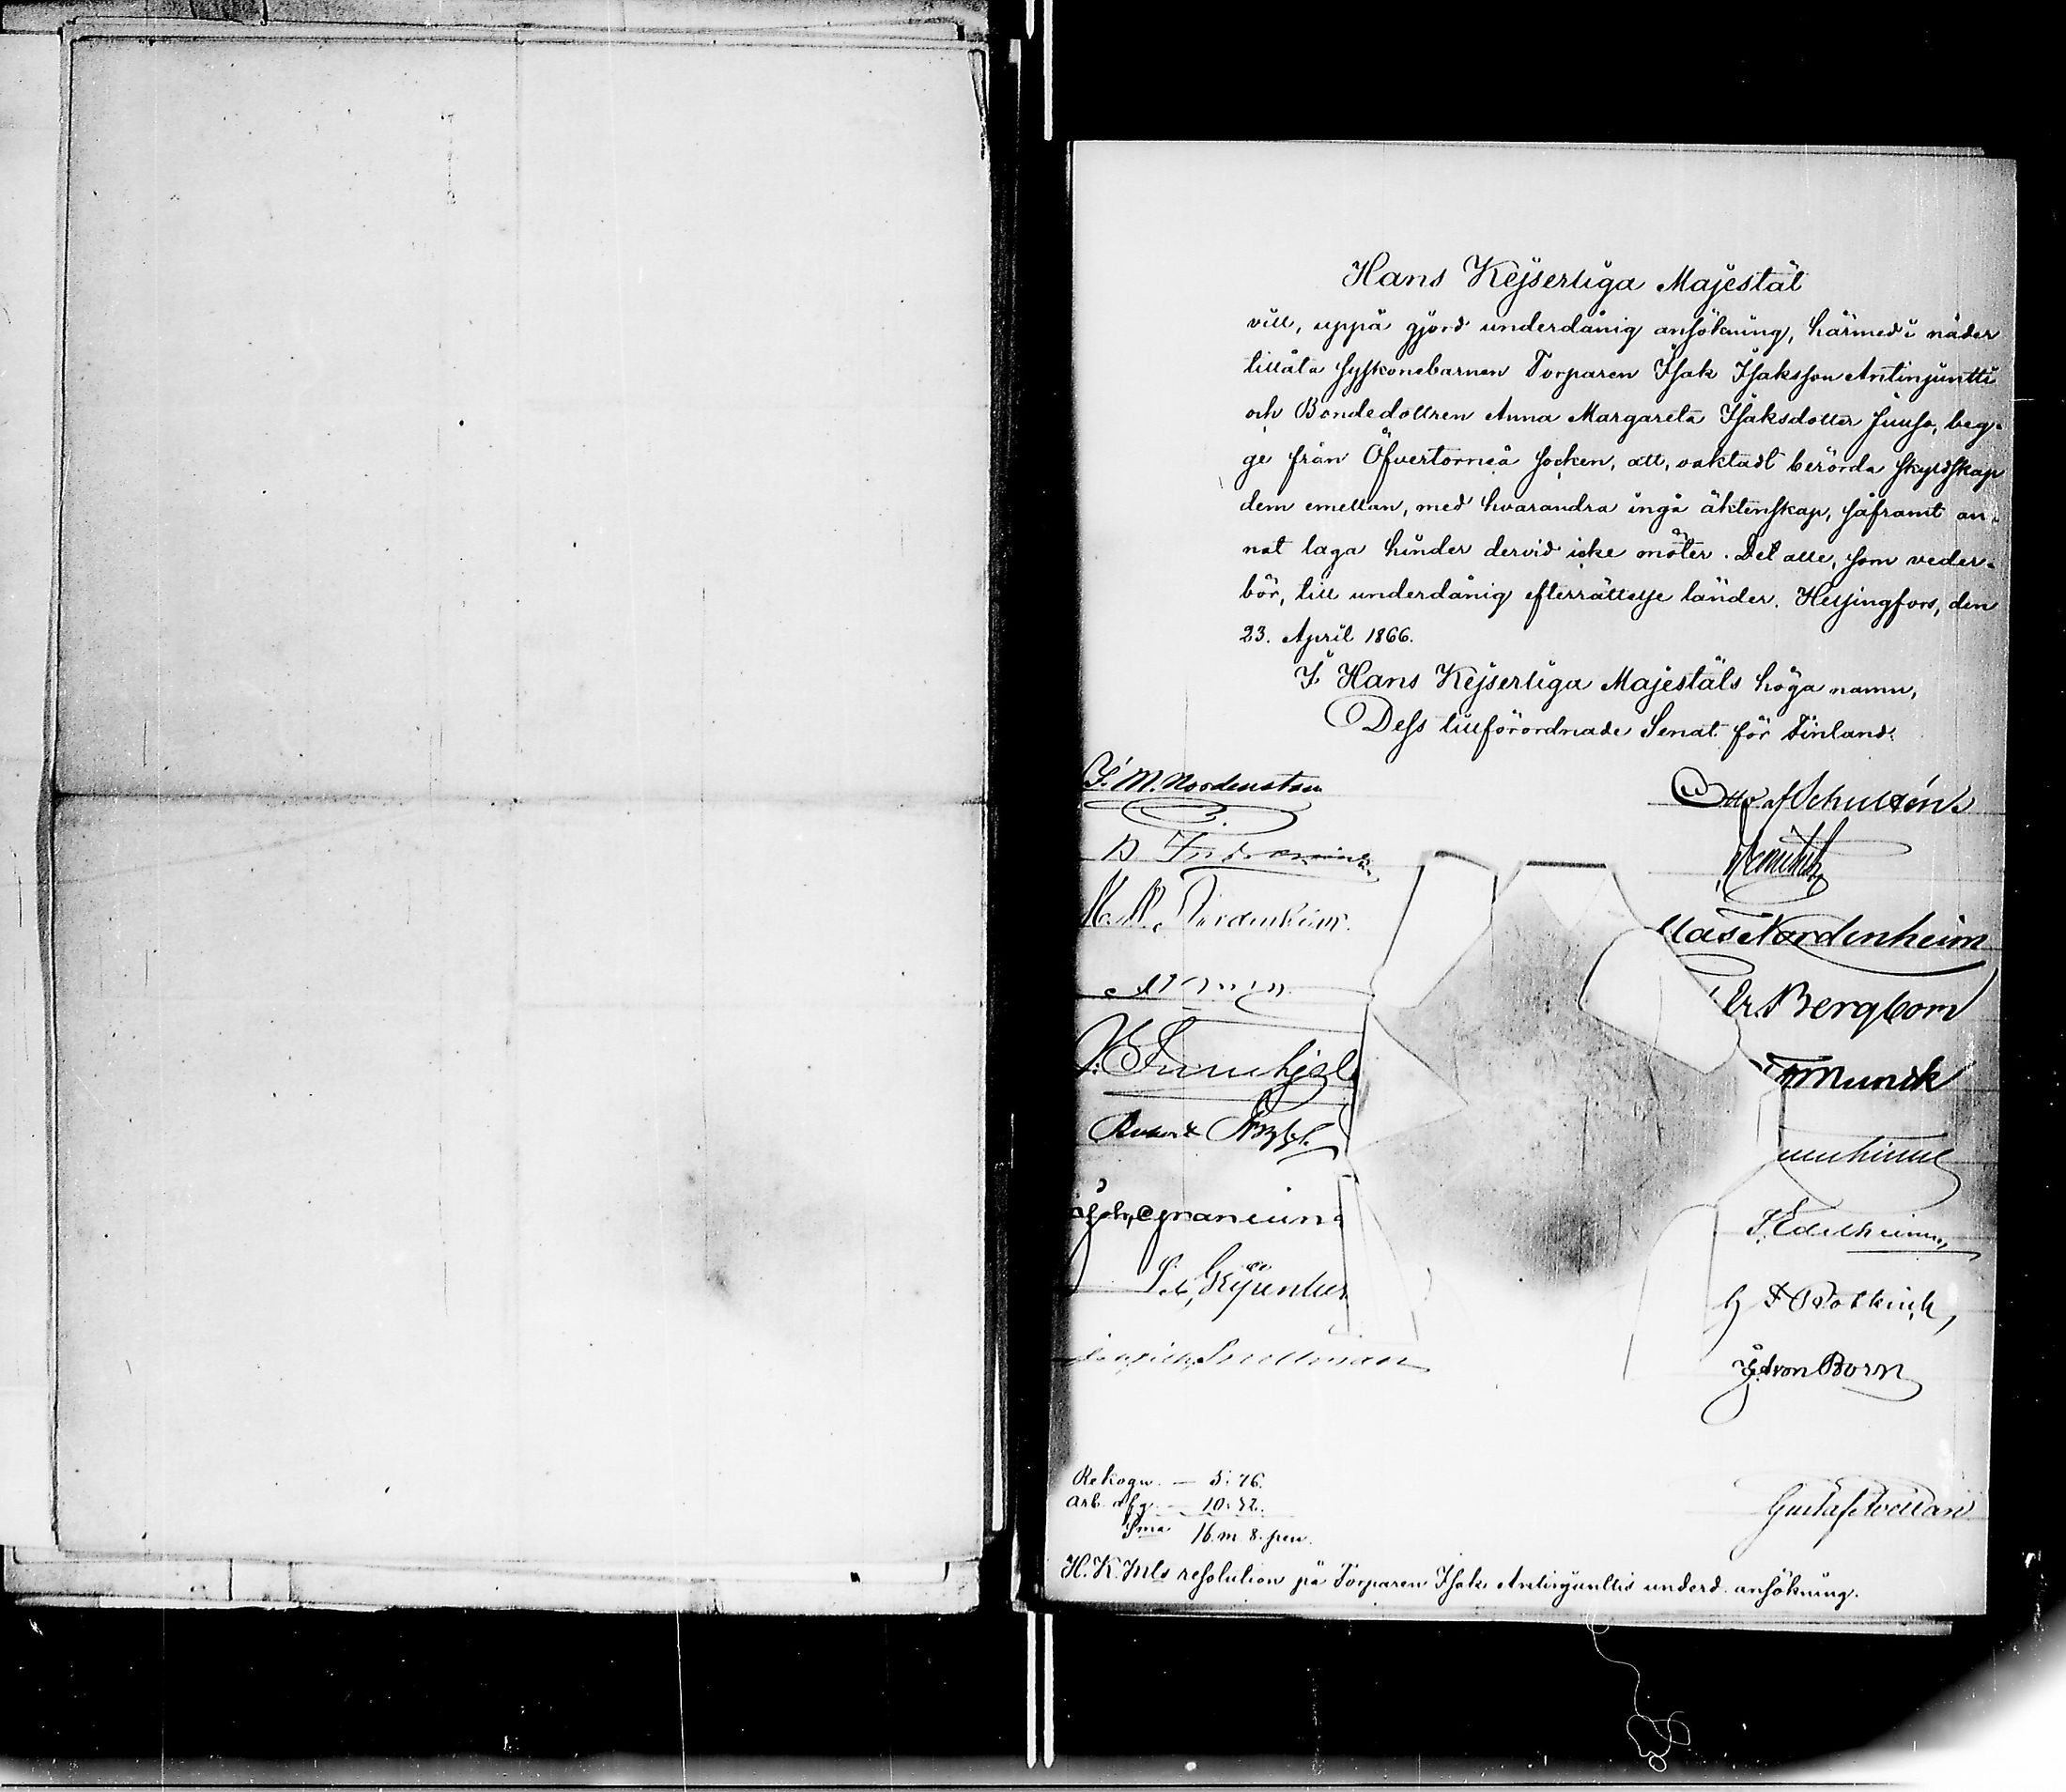 Hans Kejserliga Majestät
vill, uppå gjord underdånig ansökning, härmed i nåder
tillåta syskonebarnen Torparen Isak Isaksson Antinjuntti
och Bondedottren Anna Margareta Isaksdotter Juuso, beg-
ge från Öfvertorneå socken, att, oaktadt berörda skyldskap
dem emellan, med hvarandra ingå äktenskap, såframt an-
nat laga hinder dervid icke möter. Det alle, som veder-
bör, till underdånig efterrättelse länder. Helsingfors, den
23. April 1866.
I Hans Kejserliga Majestäts höga namn,
Dess tillförordnade Senat för Finland:
J. M. Nordenstam
Otto af Schultén
Nordenheim
Bergbom
Munck
Robert
Joh. Cygnæus
J. Edelheim
Rotkirch
von Born
Snellman
Gustaf Avellan
Rekogn. — 5: 76.
Arb. afg. — 10: 32.
S:ma 16. m. 8. pen.
H. K. M:ts resolution på Torparen Isak Antinjunttis underd. ansökning.